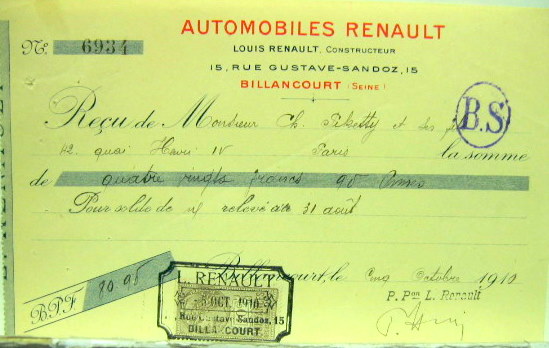 AUTOMOBILES RENAULT
LOUIS RENAULT, CONSTRUCTEUR
15, RUE GUSTAVE-SANDOZ, 15
BILLANCOURT (SEINE)
No. 6934
B.S
Reçu de Monsieur Ch. Piketty et
42 quai Henri IV Paris la somme
de quatre vingts francs 95
Pour solde de relevé au 31 août
Billancourt, le onze Octobre 1910
B.P.F 80.95
L. RENAULT
OCT. 1910
Rue Gustave Sandoz, 15
BILLANCOURT
P. Pon L. Renault